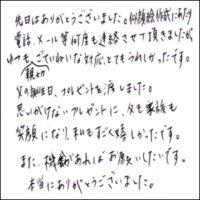 先日はありがとうございました。似顔絵作成にあたり
電話、メール等何度も連絡させて頂きましたが
いつも親切ごていねいな対応、とてもうれしかったです。
父の誕生日、プレゼントを渡しました。
思いがけないプレゼントに、父も家族も
笑顔になり、私もすごく嬉しかったです。
また、機会があればお願いしたいです。
本当にありがとうございました。